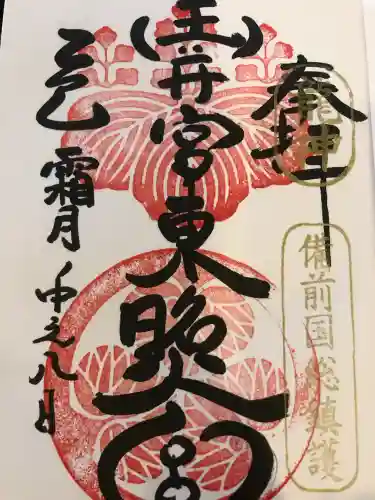 奉拝
龍神
備前国総鎮護
(玉井宮東照宮
乙巳
霜月
中之八日